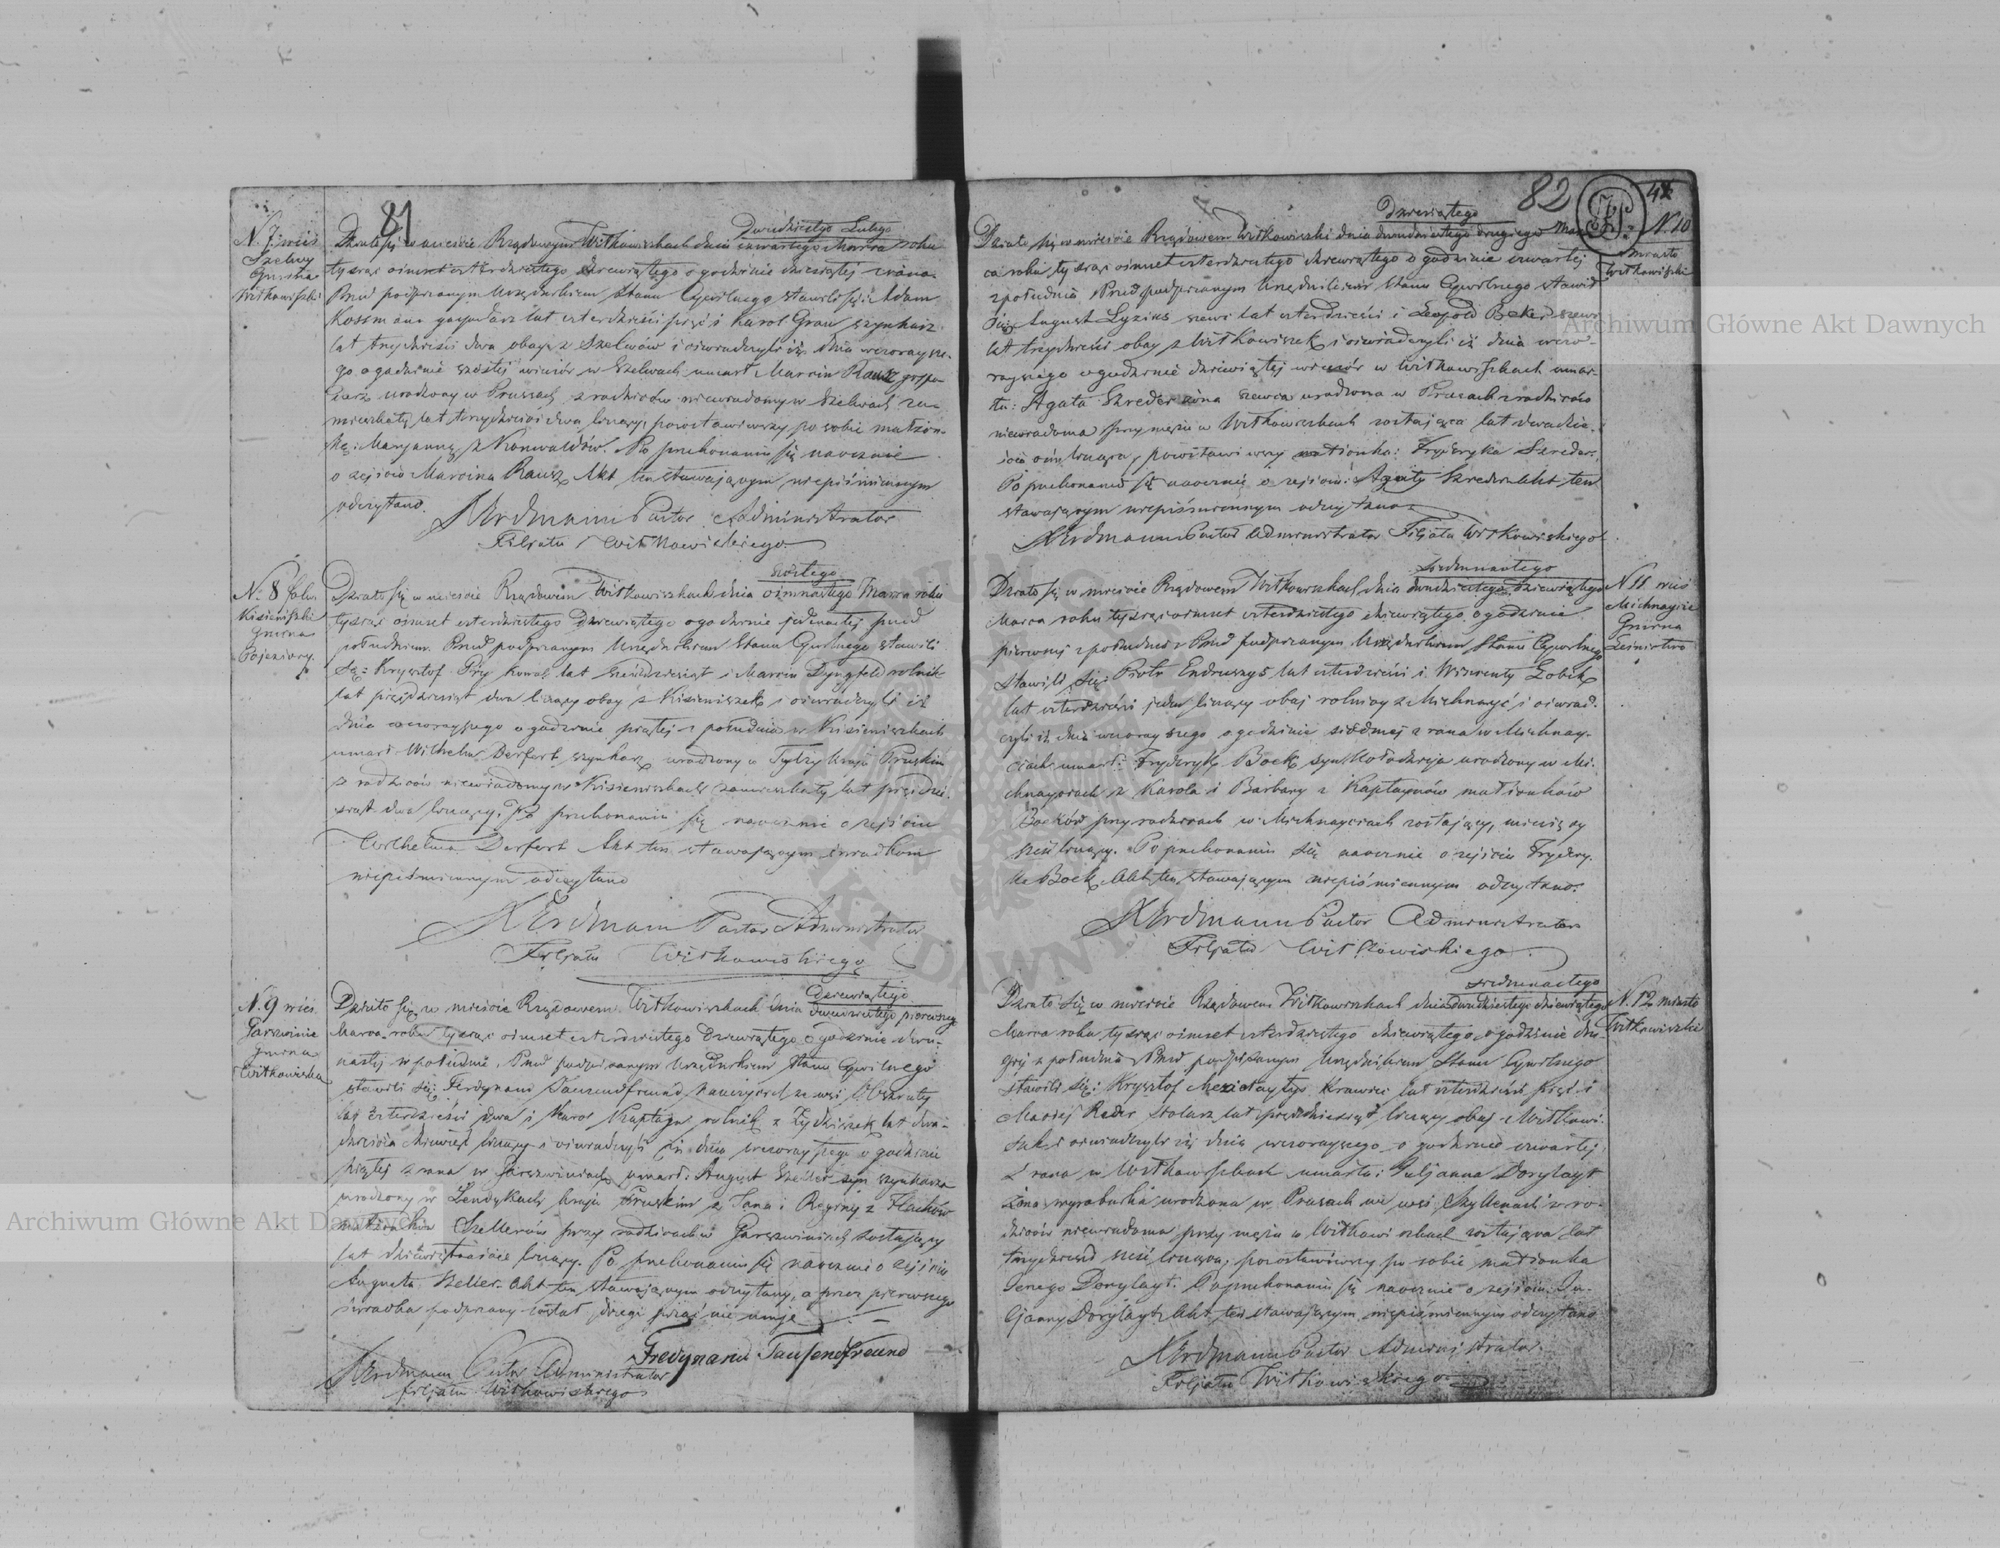 81
N. 7 wieś
Szelwy
Gmina
Witkowiszki
Dwudziestego Lutego
Działo się w mieście Rządowym Witkowiszkach dnia czwartego Marca roku
tysiąc ośmset czterdziestego dziewiątego o godzinie dziewiątej z rana.
Przed podpisanym Urzędnikiem Stanu Cywilnego stawili się: Adam
Kossman gospodarz lat czterdzieści pięć i Karol Grau szynkarz
lat trzydzieści dwa obaj z Szelwów i oświadczyli iż dnia wczorajsze-
go o godzinie szóstej wieczór w Szelwach umarł Marcin Rausz gospo-
darz urodzony w Prussach z rodziców niewiadomy w Szelwach za-
mieszkały lat trzydzieści dwa liczący, pozostawiwszy po sobie małżon-
kę: Maryannę z Konwaldów. Po przekonaniu się naocznie
o zejściu Marcina Rausz Akt ten stawającym niepiśmiennym
odczytano.
N Erdmann Pastor Administrator
Filjału Witkowiskiego
N. 8 folw.
Kisieniszki
Gmina
Pojeziory
szóstego
Działo się w mieście Rządowem Witkowiszkach dnia ośmnastego Marca roku
tysiąc ośmset czterdziestego Dziewiątego o godzinie jedenastej przed
południem. Przed podpisanym Urzędnikiem Stanu Cywilnego stawili
się: Krysztof Fry kowal lat sześćdziesiąt i Marcin Dyngfeld rolnik
lat pięćdziesiąt dwa liczący obaj z Kisieniszek i oświadczyli iż
dnia wczorajszego o godzinie piątej z południa w Kisieniszkach
umarł Wilhelm Derfert szynkarz urodzony w Tylży kraju Pruskim
z rodziców niewiadomy w Kisieniszkach zamieszkały lat pięćdzie-
siąt dwa liczący. Po przekonaniu się naocznie o zejściu
Wilhelma Derfert Akt ten stawającym świadkom
niepiśmiennym odczytano
N Erdmann Pastor Administrator
Filjału Witkowiskiego
N. 9 wieś
Garszwinie
Gmina
Witkowiska
dziewiątego
Działo się w mieście Rządowem Witkowiszkach dnia dwudziestego pierwszego
Marca roku tysiąc ośmset czterdziestego Dziewiątego o godzinie dwu-
nastej w południe. Przed podpisanym Urzędnikiem Stanu Cywilnego
stawili się: Ferdynand Tausendfreund Nauczyciel ze wsi Obszruty
lat czterdzieści dwa i Karol Kaptayn rolnik z Żydziszek lat dwa-
dzieścia dziewięć liczący i oświadczyli iż dnia wczorajszego o godzinie
piątej z rana w Garszwiniach umarł: August Szeller syn szynkarza
urodzony w Lendykach kraju Pruskim z Jana i Reginy z Flachów
małżonków Szellerów przy rodzicach w Garszwiniach zostający
lat dziewiętnaście liczący. Po przekonaniu się naocznie o zejściu
Augusta Szeller. Akt ten stawającym odczytany, a przez pierwszego
świadka podpisany został drugi pisać nie umie
Ferdynand Tausendfreund
N Erdmann Pastor Administrator
filjału Witkowiskiego
82
42
N. 10
Miasto
Witkowiszki
Dziewiątego
Działo się w mieście Rządowem Witkowiszki dnia dwudziestego drugiego Mar-
ca roku tysiąc ośmset czterdziestego dziewiątego o godzinie czwartej
z południa. Przed podpisanym Urzędnikiem Stanu Cywilnego stawili
się August Lyzius szewc lat czterdzieści i Leopold Beker szewc
lat trzydzieści obaj z Witkowiszek i oświadczyli iż dnia wczo-
rajszego o godzinie dziewiątej wieczór w Witkowiszkach umar-
ła: Agata Szreder żona szewca urodzona w Prusach z rodziców
niewiadoma przy mężu w Witkowiszkach zostająca lat dwadzie-
ścia ośm licząca, pozostawiwszy małżonka: Fryderyka Szreder.
Po przekonaniu się naocznie o zejściu: Agaty Szreder Akt ten
stawającym niepiśmiennym odczytano
N Erdmann Pastor Administrator Filjału Witkowiskiego
N 11 wieś
Michnajcie
Gmina
Leśnictwo
siedmnastego
Działo się w mieście Rządowem Witkowiszkach dnia dwudziestego dziewiątego
Marca roku tysiąc ośmset czterdziestego dziewiątego o godzinie
pierwszej z południa Przed podpisanym Urzędnikiem Stanu Cywilnego
Stawili się: Piotr Endruszys lat czterdzieści i Wincenty Łobik
lat czterdzieści jeden liczący obaj rolnicy z Michnajć i oświad-
czyli iż dnia wczorajszego o godzinie siódmej z rana w Michnaj-
ciach umarł: Fryderyk Bock syn Kołodzieja urodzony w Mi-
chnajciach z Karola i Barbary z Kaptaynów małżonków
Bocków przy rodzicach w Michnajciach zostający, miesięcy
sześć liczący. Po przekonaniu się naocznie o zejściu Frydery-
ka Bock. Akt ten stawającym niepiśmiennym odczytano.
N Erdmann Pastor Administrator
Filjału Witkowiskiego
N. 12 miasto
Witkowiszki
siedmnastego
Działo się w mieście Rządowem Witkowiszkach dnia dwudziestego dziewiątego
Marca roku tysiąc ośmset czterdziestego dziewiątego, o godzinie dru-
giej z południa Przed podpisanym Urzędnikiem Stanu Cywilnego
stawili się: Krysztof Krawiec lat czterdzieści pięć i
Maciej Reder stolarz lat pięćdziesiąt liczący obaj z Witkowi-
szek i oświadczyli iż dnia wczorajszego o godzinie czwartej
z rana w Witkowiszkach umarła: Juljanna Dorylayt
żona wyrobnika urodzona w Prusach we wsi Szyllenach z ro-
dziców niewiadoma przy mężu w Witkowiszkach zostająca lat
trzydzieści sześć licząca; pozostawiwszy po sobie małżonka
Jenego Dorylayt. Po przekonaniu się naocznie o zejściu Ju-
ljanny Dorylayt Akt ten stawającym niepiśmiennym odczytano
N Erdmann Pastor Administrator
Filjału Witkowiskiego
Archiwum Główne Akt Dawnych
Archiwum Główne Akt Dawnych
AKT DAWNYCH